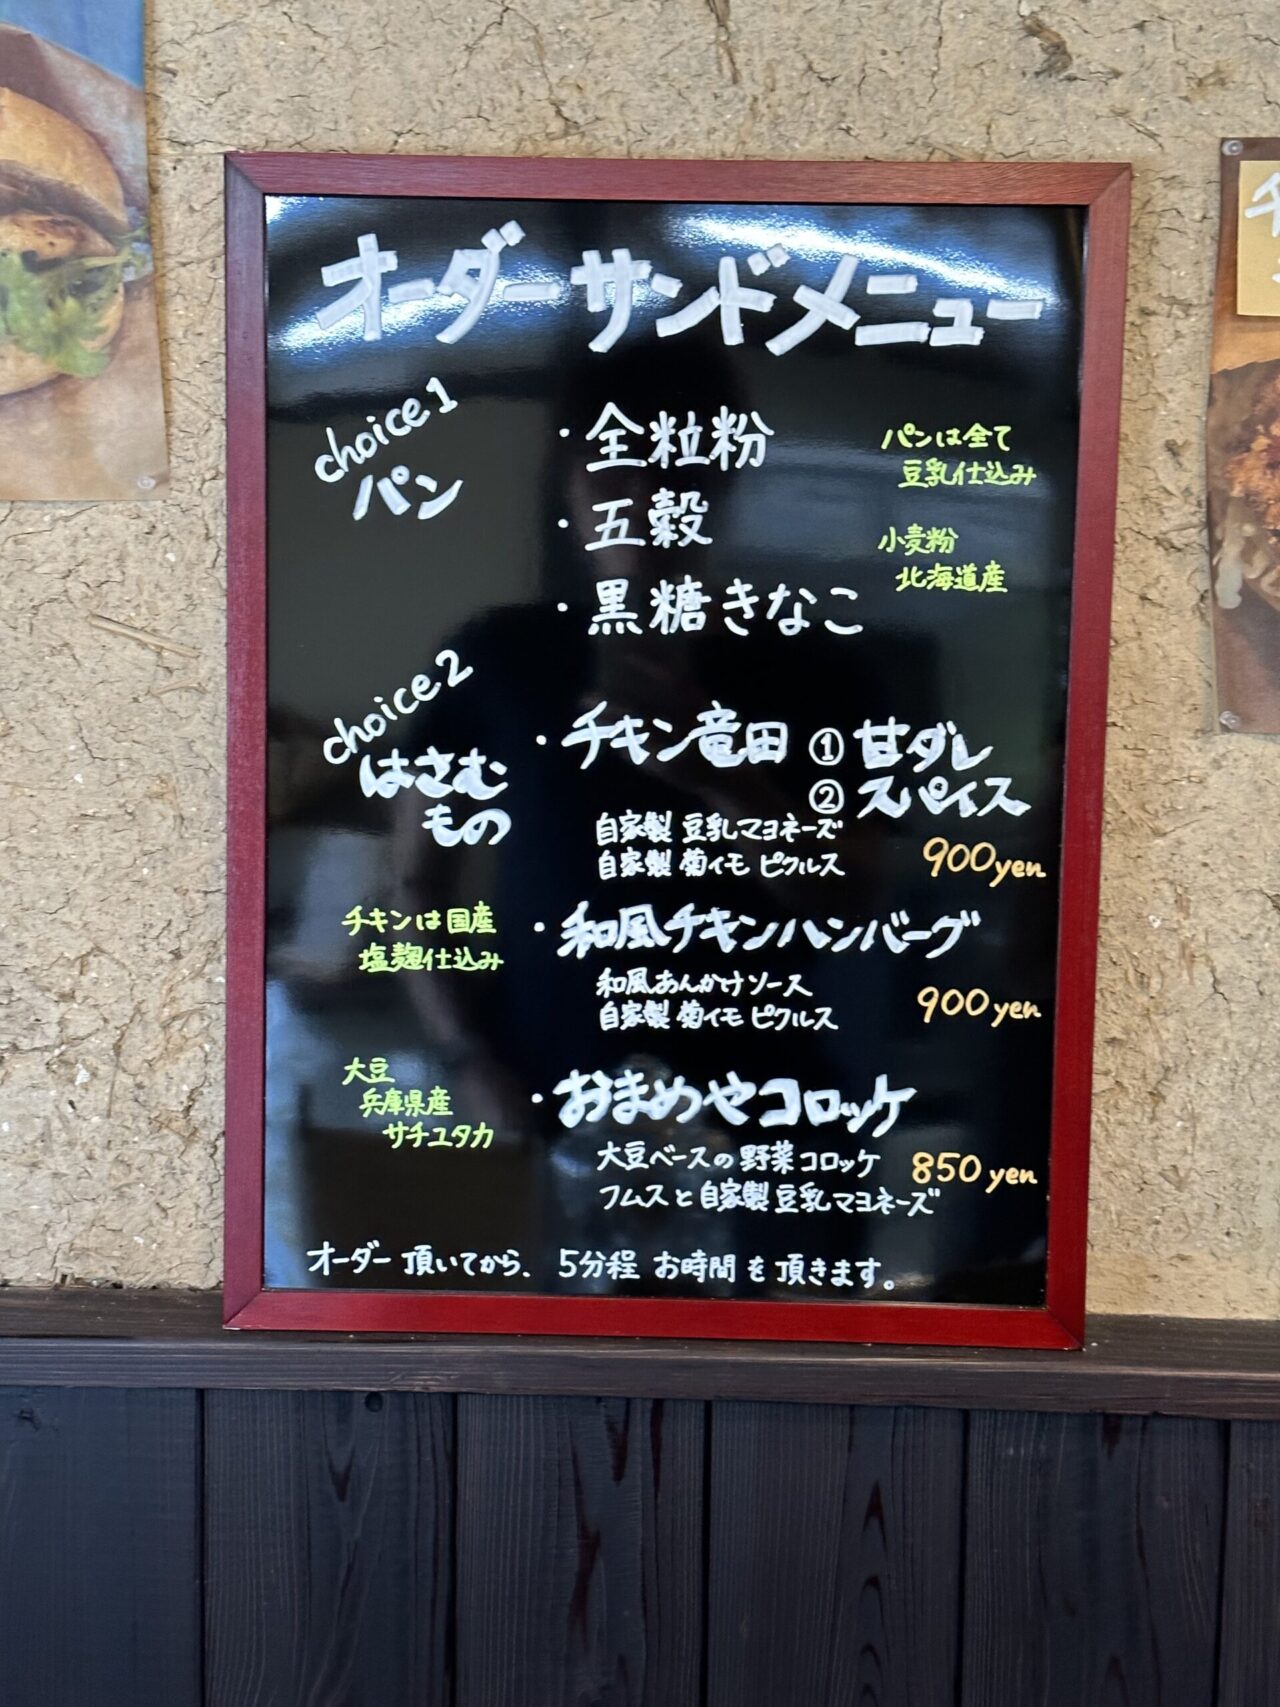 オーダーサンドメニュー
choice1
パン
・全粒粉
・五穀
・黒糖きなこ
パンは全て
豆乳仕込み
小麦粉
北海道産
choice2
はさむ
もの
・チキン竜田 ①甘ダレ
②スパイス
自家製 豆乳マヨネーズ
自家製 菊イモ ピクルス
900yen
チキンは国産
塩麹仕込み
・和風チキンハンバーグ
和風あんかけソース
自家製 菊イモ ピクルス
900yen
大豆
兵庫県産
サチユタカ
・おまめやコロッケ
大豆ベースの野菜コロッケ
フムスと自家製豆乳マヨネーズ
850yen
オーダー頂いてから、5分程 お時間を頂きます。